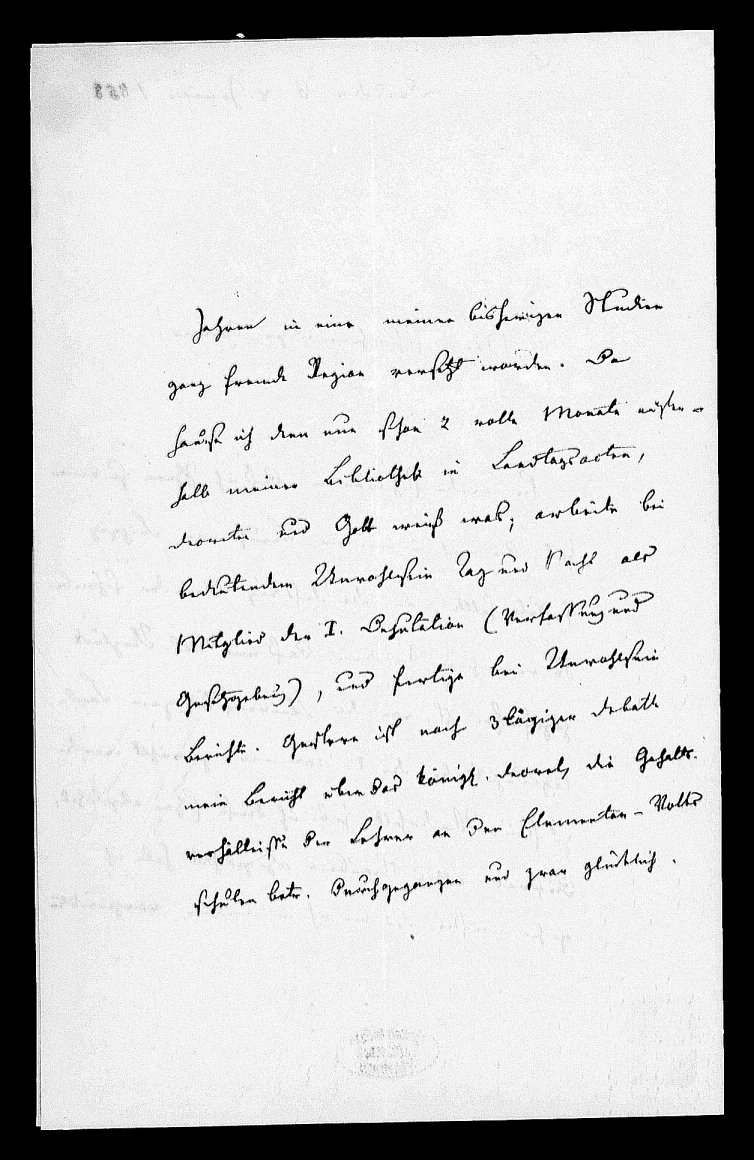 Jahren in eine meinen bisherigen Studien
ganz fremde Region versetzt worden. Da
hause ich denn nun schon 2 volle Monate außer-
halb meiner Bibliothek in Landtagsacten,
decreten und Gott weiß was; arbeite bei
bedeutendem Unwohlsein Tag und Nacht als
Mitglied der I. Deputation (Verfassung und
Gesetzgebung), und fertige bei Unwohlsein
Berichte. Gestern ist nach 3tägiger debatte
mein Bericht über das königl. decret, die Gehalts-
verhältnisse der Lehrer an den Elementar-Volks
schulen betr. durchgegangen und zwar glücklich.